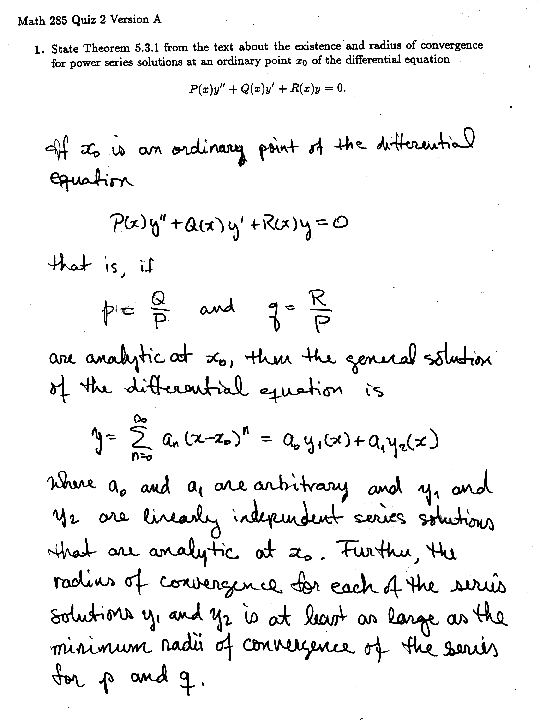 Math 285 Quiz 2 Version A
1. State Theorem 5.3.1 from the text about the existence and radius of convergence
for power series solutions at an ordinary point x₀ of the differential equation
P(x)y″ + Q(x)y′ + R(x)y = 0.
If x₀ is an ordinary point of the differential
equation
P(x)y″ + Q(x)y′ + R(x)y = 0
that is, if
p = Q/P and q = R/P
are analytic at x₀, then the general solution
of the differential equation is
y = ∑_{n=0}^{∞} aₙ(x-x₀)ⁿ = a₀y₁(x) + a₁y₂(x)
where a₀ and a₁ are arbitrary and y₁ and
y₂ are linearly independent series solutions
that are analytic at x₀. Further, the
radius of convergence for each of the series
solutions y₁ and y₂ is at least as large as the
minimum radii of convergence of the series
for p and q.